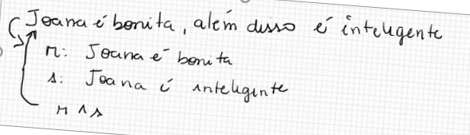 Joana é bonita, além disso é inteligente
r: Joana é bonita
s: Joana é inteligente
r ∧ s